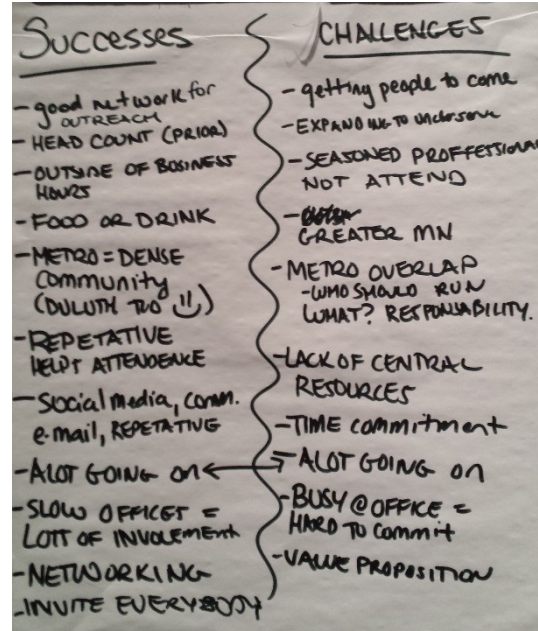 Successes
- good network for
OUTREACH
- HEAD COUNT (PRIOR)
- OUTSIDE OF BUSINESS
HOURS
- FOOD OR DRINK
- METRO = DENSE
Community
(DULUTH TOO :))
- REPETATIVE
HELPS ATTENDENCE
- Social media, comm.
e-mail, REPETATIVE
- ALOT GOING ON
- SLOW OFFICES =
LOTT OF INVOLEMENT
- NETWORKING
- INVITE EVERYBODY
CHALLENGES
- getting people to come
- EXPANDING TO underserve
- SEASONED PROFFESSIONAL
NOT ATTEND
- GREATER MN
- METRO OVERLAP
- WHO SHOULD RUN
WHAT? RESPONSABILITY.
- LACK OF CENTRAL
RESOURCES
- TIME commitment
- ALOT GOING ON
- BUSY @ OFFICE =
HARD TO COMMIT
- VALUE PROPOSITION